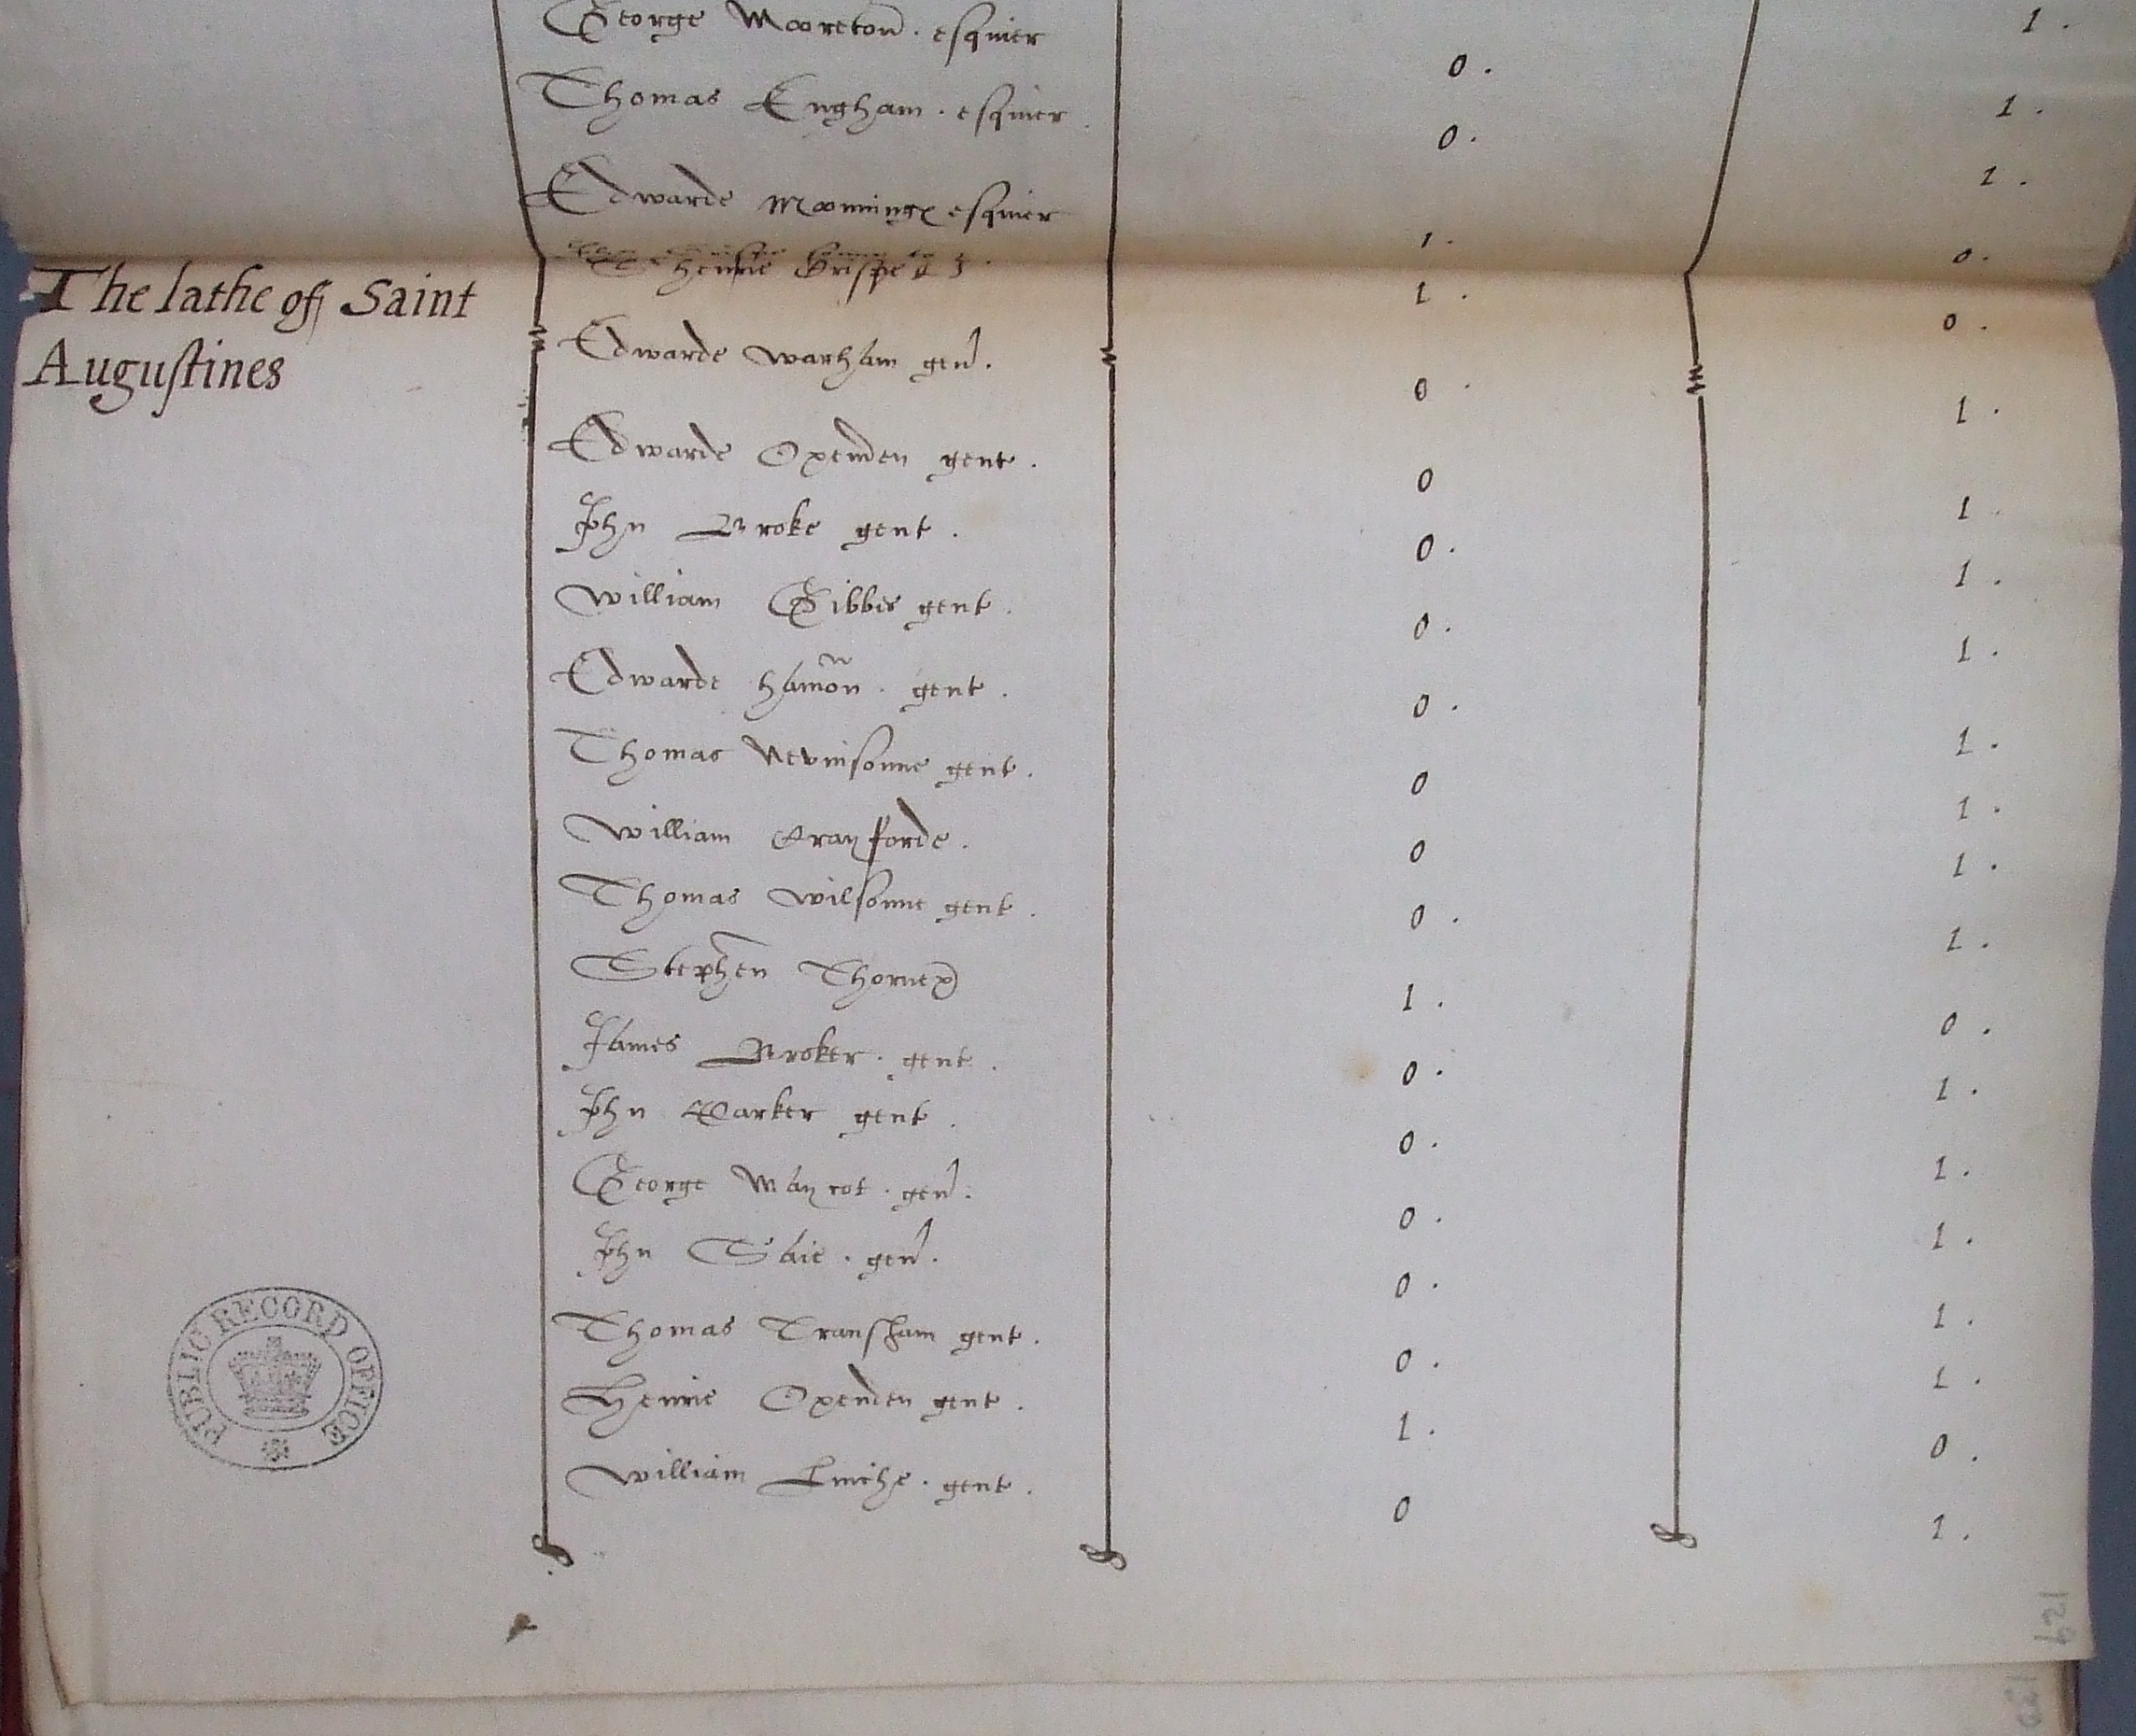 George Mooreton . esquier 0 . 1 .
Thomas Engham . esquier 0 . 1 .
Edwarde Monninges esquier 1 .
1 . 0 .
The lathe of Saint henrie Crispe 1 . 0 .
Augustines
Edwarde warham gen . 0 . 1 .
Edwarde Oxenden gent . 0 1 .
John Broke gent . 0 . 1 .
William Gibbes gent . 0 . 1 .
Edwarde hamon . gent . 0 . 1 .
Thomas Nevinsonne gent . 0 1 .
William Crayforde . 0 1 .
Thomas Wilsonne gent . 0 . 1 .
Stephen Thornex 1 . 0 .
James Broker . gent . 0 . 1 .
John Parker gent . 0 . 1 .
George Maycot . gen . 0 . 1 .
John Saie . gen . 0 . 1 .
Thomas Transham gent . 0 . 1 .
Henrie Oxenden gent . 1 . 0 .
William Linche . gent . 0 1 .
PUBLIC RECORD OFFICE
129